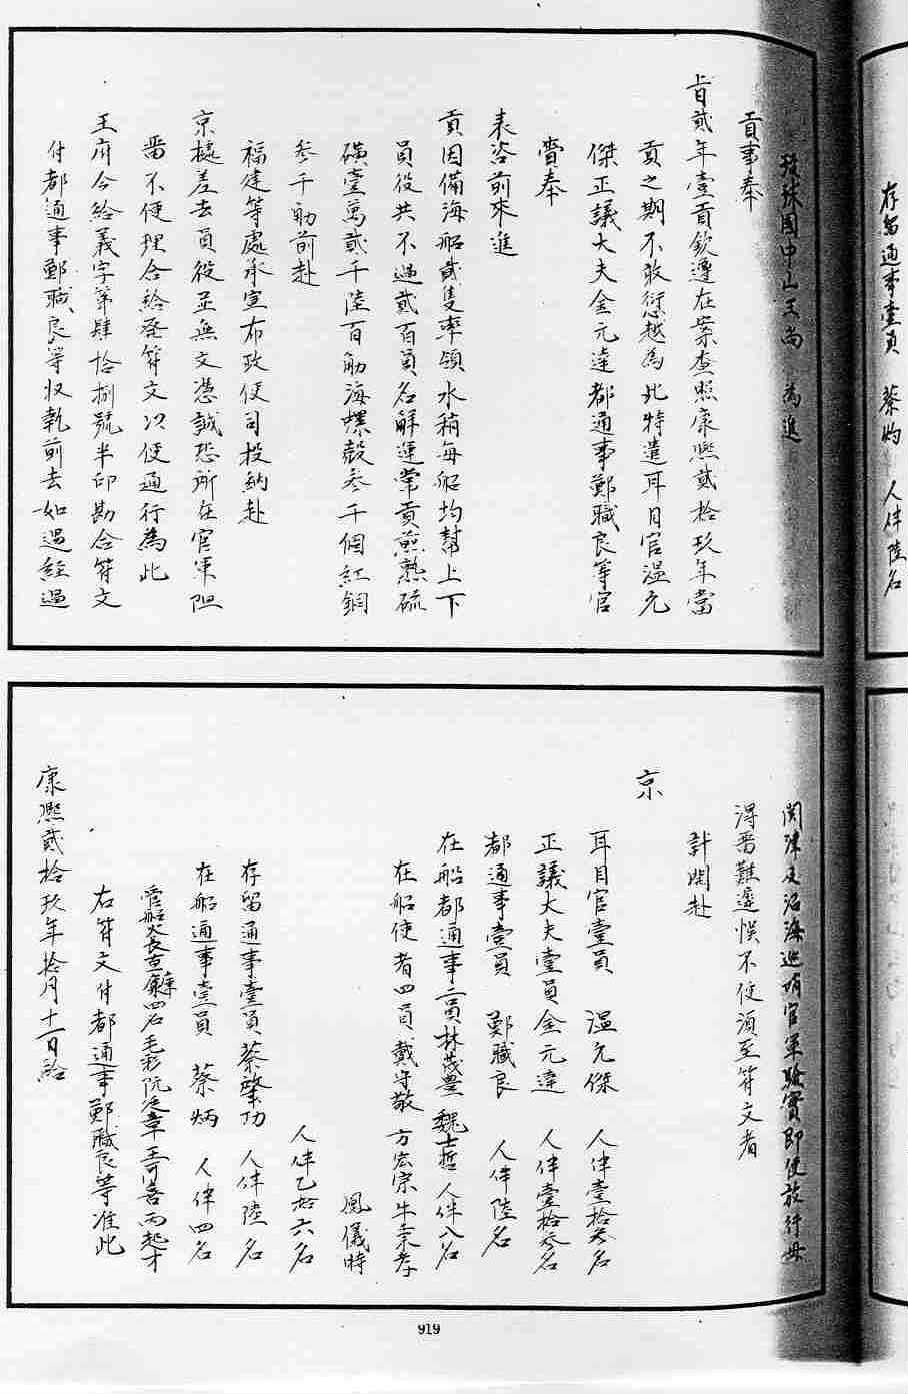 存留通事壹員　蔡灼　人伴陸名
琉球國中山王尚　為進
貢事奉
旨貳年壹貢欽遵在案查照康熙貳拾玖年當
貢之期不敢愆越為此特遣耳目官温允
傑正議大夫金元達都通事鄭職良等官
賫奉
表咨前來進
貢因備海船貳隻率領水稍每船均幇上下
員役共不過貳百員名解運常貢煎熟硫
磺壹萬貳千陸百觔海螺殼叁千個紅銅
叁千觔前赴
福建等處承宣布政使司投納赴
京橃差去員役並無文憑誠恐所在官軍阻
畱不便理合給發符文以便通行為此
王府今給義字第肆拾捌號半印勘合符文
付都通事鄭職良等收執前去如遇經過
関津及沿海巡哨官軍驗實即便放行毋
得畱難遲悞不便須至符文者
計開赴
京
耳目官壹員　温允傑　人伴壹拾叁名
正議大夫壹員金元達　人伴壹拾叁名
都通事壹員　鄭職良　人伴陸名
在船都通事二員林茂豊　魏士哲　人伴八名
在船使者四員戴守敬　方宏宗　牛崇孝
鳳儀時
人伴乙拾六名
存留通事壹員蔡肇功　人伴陸名
在船通事壹員　蔡炳　人伴四名
管船火長直庫四名毛彩　阮廷章　王可喜　而起才
右符文付都通事鄭職良等准此
康熙貳拾玖年拾月十一日給
919